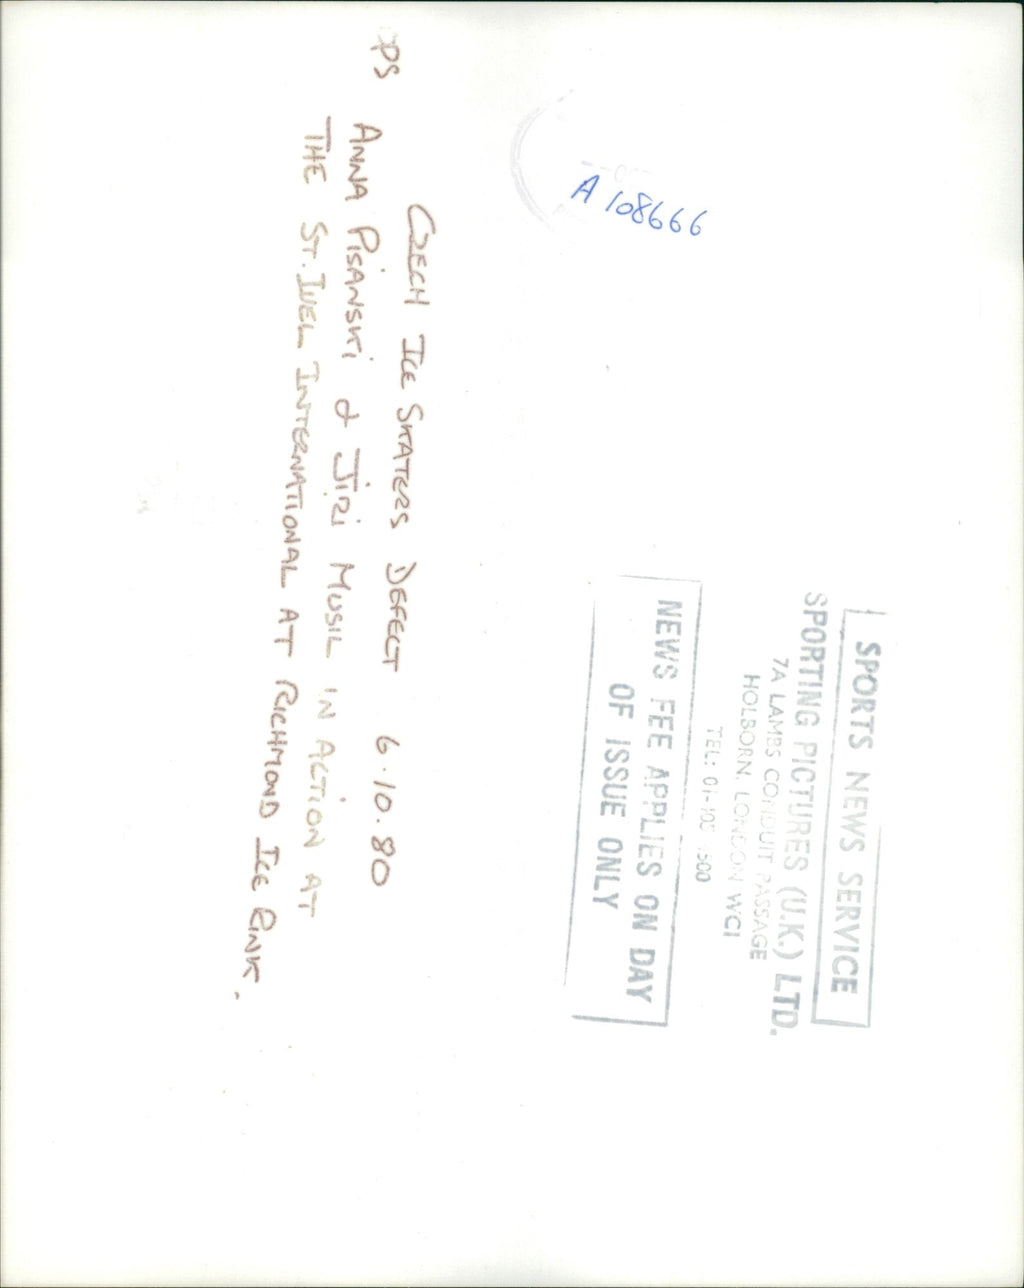 A 108666
SPORTS NEWS SERVICE
SPORTING PICTURES (U.K.) LTD.
7A LAMBS CONDUIT PASSAGE
HOLBORN, LONDON WC1
TEL: 01-405 4500
NEWS FEE APPLIES ON DAY
OF ISSUE ONLY
CZECH ICE SKATERS DEFECT 6.10.80
PS ANNA PISANSKI & JIRI MUSIL IN ACTION AT
THE ST.IVEL INTERNATIONAL AT RICHMOND ICE RINK.